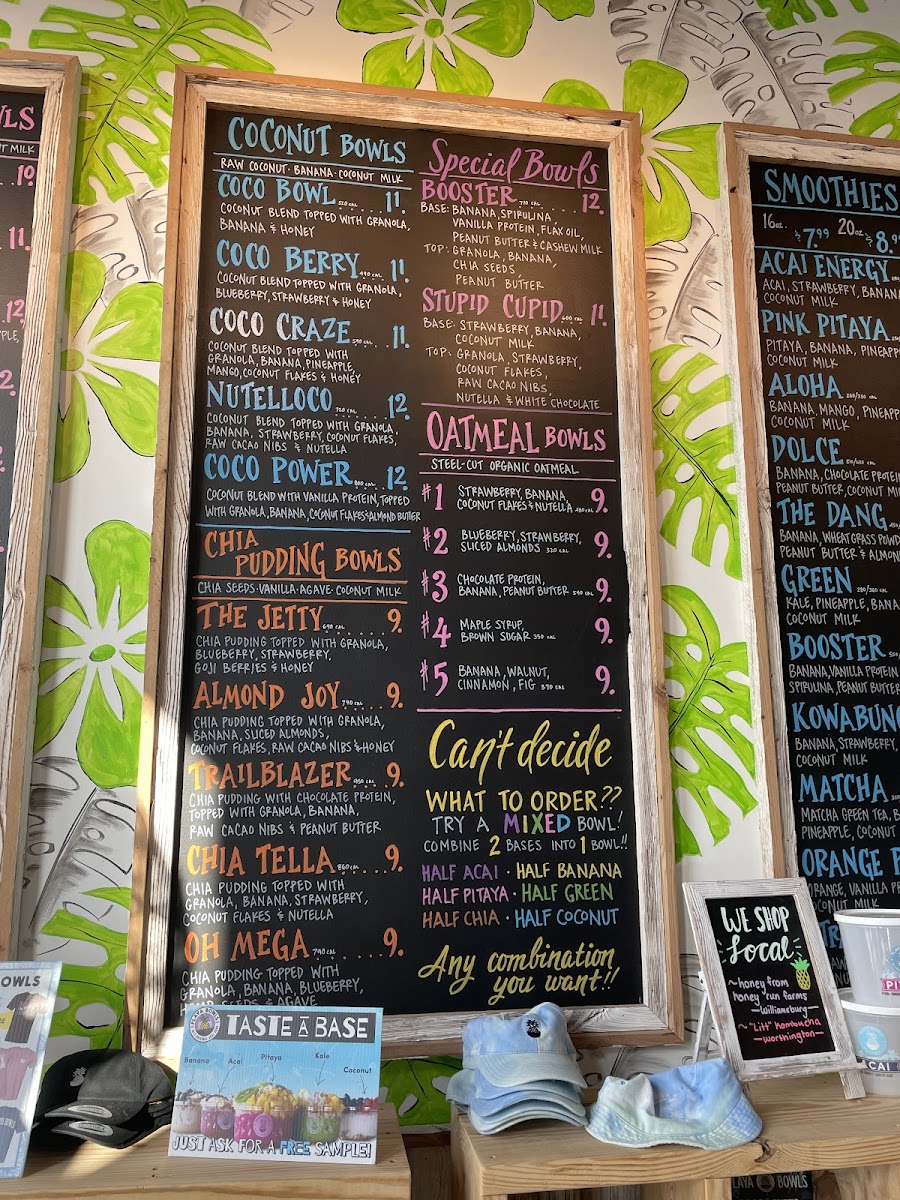 WLS
T MILK
10.
11.
12.
PLE,
2.
COCONUT BOWLS
RAW COCONUT · BANANA · COCONUT MILK
COCO BOWL 11.
COCONUT BLEND TOPPED WITH GRANOLA,
BANANA & HONEY
COCO BERRY 11.
COCONUT BLEND TOPPED WITH GRANOLA,
BLUEBERRY, STRAWBERRY & HONEY
COCO CRAZE 11.
COCONUT BLEND TOPPED WITH
GRANOLA, BANANA, PINEAPPLE,
MANGO, COCONUT FLAKES & HONEY
NUTELLOCO 12.
COCONUT BLEND TOPPED WITH GRANOLA,
BANANA, STRAWBERRY, COCONUT FLAKES,
RAW CACAO NIBS & NUTELLA
COCO POWER 12.
COCONUT BLEND WITH VANILLA PROTEIN, TOPPED
WITH GRANOLA, BANANA, COCONUT FLAKES & ALMOND BUTTER
CHIA
PUDDING BOWLS
CHIA SEEDS · VANILLA · AGAVE · COCONUT MILK
THE JETTY 9.
CHIA PUDDING TOPPED WITH GRANOLA,
BLUEBERRY, STRAWBERRY,
GOJI BERRIES & HONEY
ALMOND JOY 9.
CHIA PUDDING TOPPED WITH GRANOLA,
BANANA, SLICED ALMONDS,
COCONUT FLAKES, RAW CACAO NIBS & HONEY
TRAILBLAZER 9.
CHIA PUDDING WITH CHOCOLATE PROTEIN,
TOPPED WITH GRANOLA, BANANA,
RAW CACAO NIBS & PEANUT BUTTER
CHIA TELLA 860 CAL 9.
CHIA PUDDING TOPPED WITH
GRANOLA, BANANA, STRAWBERRY,
COCONUT FLAKES & NUTELLA
OH MEGA 790 CAL 9.
CHIA PUDDING TOPPED WITH
GRANOLA, BANANA, BLUEBERRY,
SEEDS & AGAVE
Special Bowls
BOOSTER 12.
BASE: BANANA, SPIRULINA,
VANILLA PROTEIN, FLAX OIL,
PEANUT BUTTER & CASHEW MILK
TOP: GRANOLA, BANANA,
CHIA SEEDS,
PEANUT BUTTER
STUPID CUPID 11.
BASE: STRAWBERRY, BANANA,
COCONUT MILK
TOP: GRANOLA, STRAWBERRY,
COCONUT FLAKES,
RAW CACAO NIBS,
NUTELLA & WHITE CHOCOLATE
OATMEAL BOWLS
STEEL-CUT ORGANIC OATMEAL
#1 STRAWBERRY, BANANA,
COCONUT FLAKES & NUTELLA 9.
#2 BLUEBERRY, STRAWBERRY,
SLICED ALMONDS 320 CAL 9.
#3 CHOCOLATE PROTEIN,
BANANA, PEANUT BUTTER 9.
#4 MAPLE SYRUP,
BROWN SUGAR 350 CAL 9.
#5 BANANA, WALNUT,
CINNAMON, FIG 370 CAL 9.
Can't decide
WHAT TO ORDER??
TRY A MIXED BOWL!
COMBINE 2 BASES INTO 1 BOWL!!
HALF ACAI · HALF BANANA
HALF PITAYA · HALF GREEN
HALF CHIA · HALF COCONUT
Any combination
you want!!
SMOOTHIES
16oz. 7.99 20oz. 8.9
ACAI ENERGY
ACAI, STRAWBERRY, BANANA
COCONUT MILK
PINK PITAYA
PITAYA, BANANA, PINEAPP
COCONUT MILK
ALOHA
BANANA, MANGO, PINEAPP
COCONUT MILK
DOLCE
BANANA, CHOCOLATE PROTEI
PEANUT BUTTER, COCONUT MI
THE DANG
BANANA, WHEATGRASS POWD
PEANUT BUTTER & ALMON
GREEN
KALE, PINEAPPLE, BANA
COCONUT MILK
BOOSTER
BANANA, VANILLA PROTEIN
SPIRULINA, PEANUT BUTTER
KOWABUNG
BANANA, STRAWBERRY,
COCONUT MILK
MATCHA
MATCHA GREEN TEA, B
PINEAPPLE, COCONUT
ORANGE
ORANGE, VANILLA PR
COCONUT MILK
WE SHOP
Local
~honey from
honey run farms
—williamsburg
~"Litt" kombucha
—worthington—
BOWLS
TASTE A BASE
Banana Acai Pitaya Kale Coconut
JUST ASK FOR A FREE SAMPLE!
PI
CAI
PLAYA BOWLS